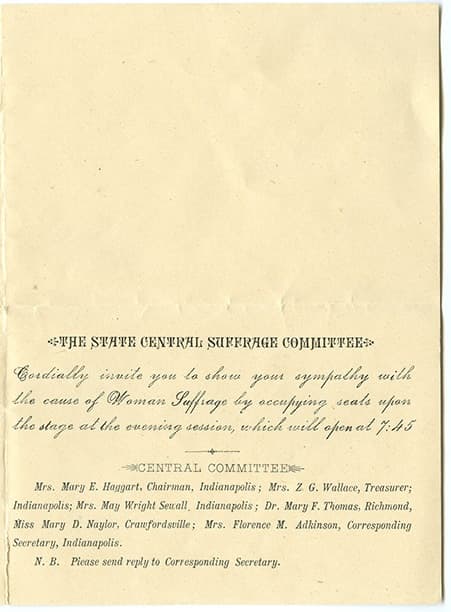 THE STATE CENTRAL SUFFRAGE COMMITTEE
Cordially invite you to show your sympathy with
the cause of Woman Suffrage by occupying seats upon
the stage at the evening session, which will open at 7:45
CENTRAL COMMITTEE
Mrs. Mary E. Haggart, Chairman, Indianapolis; Mrs. Z. G. Wallace, Treasurer;
Indianapolis; Mrs. May Wright Sewall, Indianapolis; Dr. Mary F. Thomas, Richmond,
Miss Mary D. Naylor, Crawfordsville; Mrs. Florence M. Adkinson, Corresponding
Secretary, Indianapolis.
N. B. Please send reply to Corresponding Secretary.